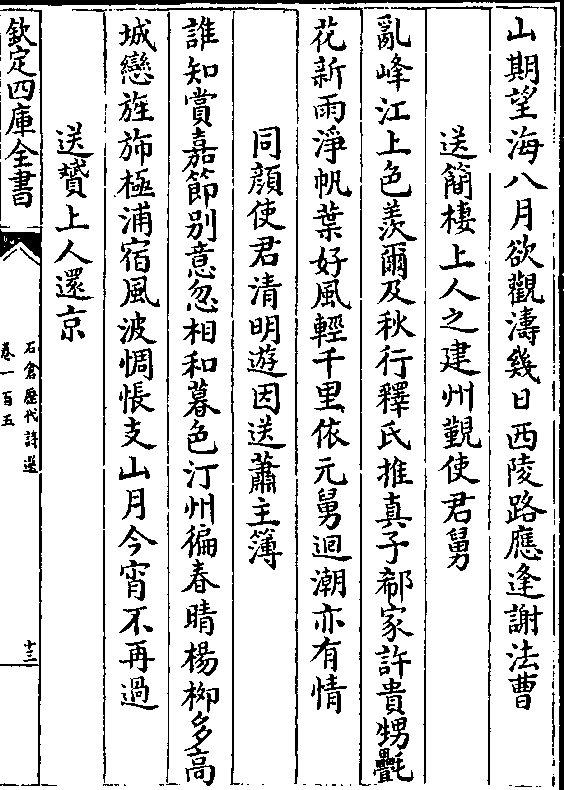 山期望海八月欲觀濤幾日西陵路應逢謝法曹
送簡棲上人之建州覲使君舅
亂峰江上色羨爾及秋行釋氏推真子郗家許貴甥氎
花新雨淨帆葉好風輕千里依元舅迴潮亦有情
同顔使君清明遊因送蕭主簿
誰知賞嘉節别意忽相和暮色汀州徧春晴楊柳多高
城戀旌斾極浦宿風波惆悵支山月今宵不再過
送贊上人還京
欽定四庫全書
石倉歷代詩選
卷一百五
十三